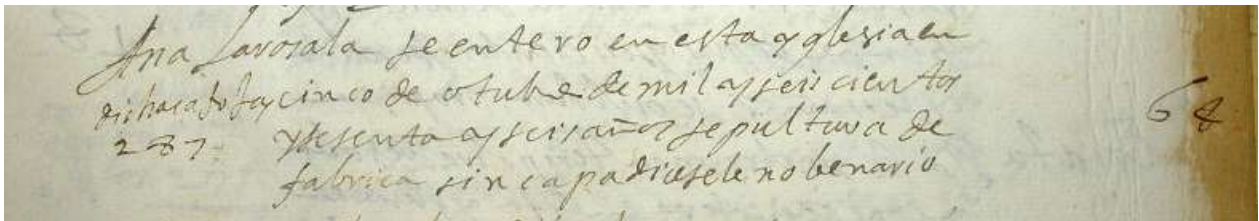 Ana Larosala se entero en esta yglesia en
cinco de otubre de mil y seis cientos
237 y sesenta y seis años sepultura de
fabrica sin capa diosele nobenario
68